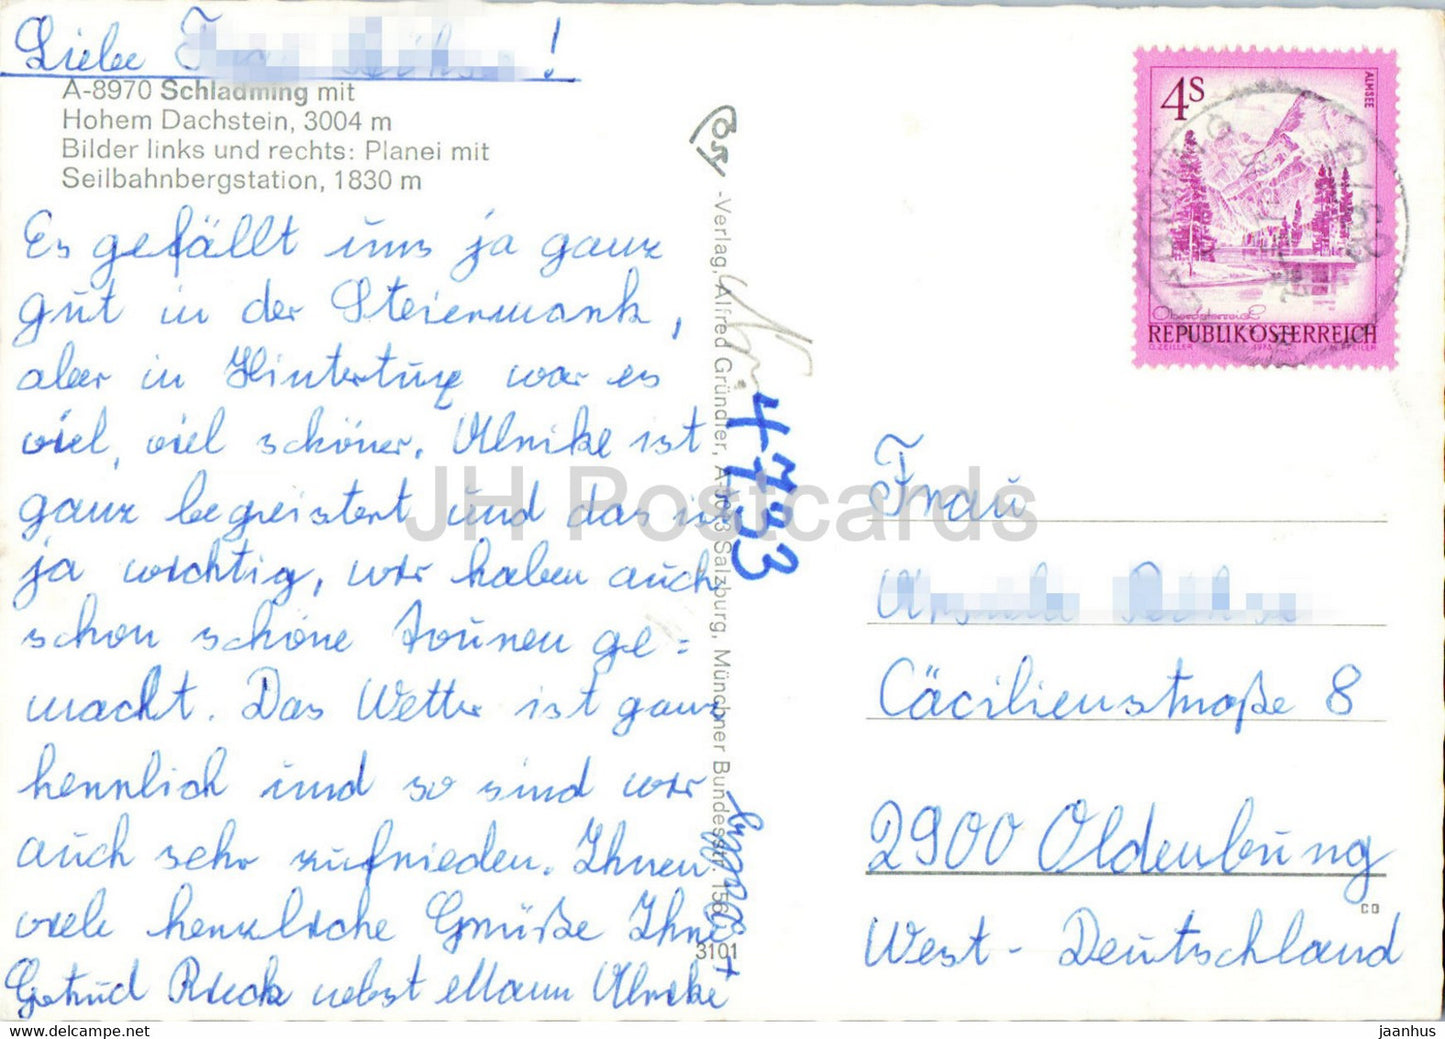 Liebe
!
A-8970 Schladming mit
Hohem Dachstein, 3004 m
Bilder links und rechts: Planei mit
Seilbahnbergstation, 1830 m
Es gefällt uns ja ganz
gut in der Steiermark,
aber in Hintertux war es
viel, viel schöner. Ulrike ist
ganz begeistert und das ist
ja wichtig, wir haben auch
schon schöne Touren ge=
macht. Das Wetter ist ganz
herrlich und so sind wir
auch sehr zufrieden. Ihnen
viele herzliche Grüße Ihre
Gertrud Rieck nebst Mann Ulrike
-Verlag, Alfred Gründler, A-5013 Salzburg, Münchner Bundesstr. 156
3101
4793
4733
4 S
ALMSEE
Oberösterreich
REPUBLIK ÖSTERREICH
O. ZEILLER 1973
Frau
Cäcilienstraße 8
2900 Oldenburg
West-Deutschland
JH Postcards
hipostcard.com
jaanhus